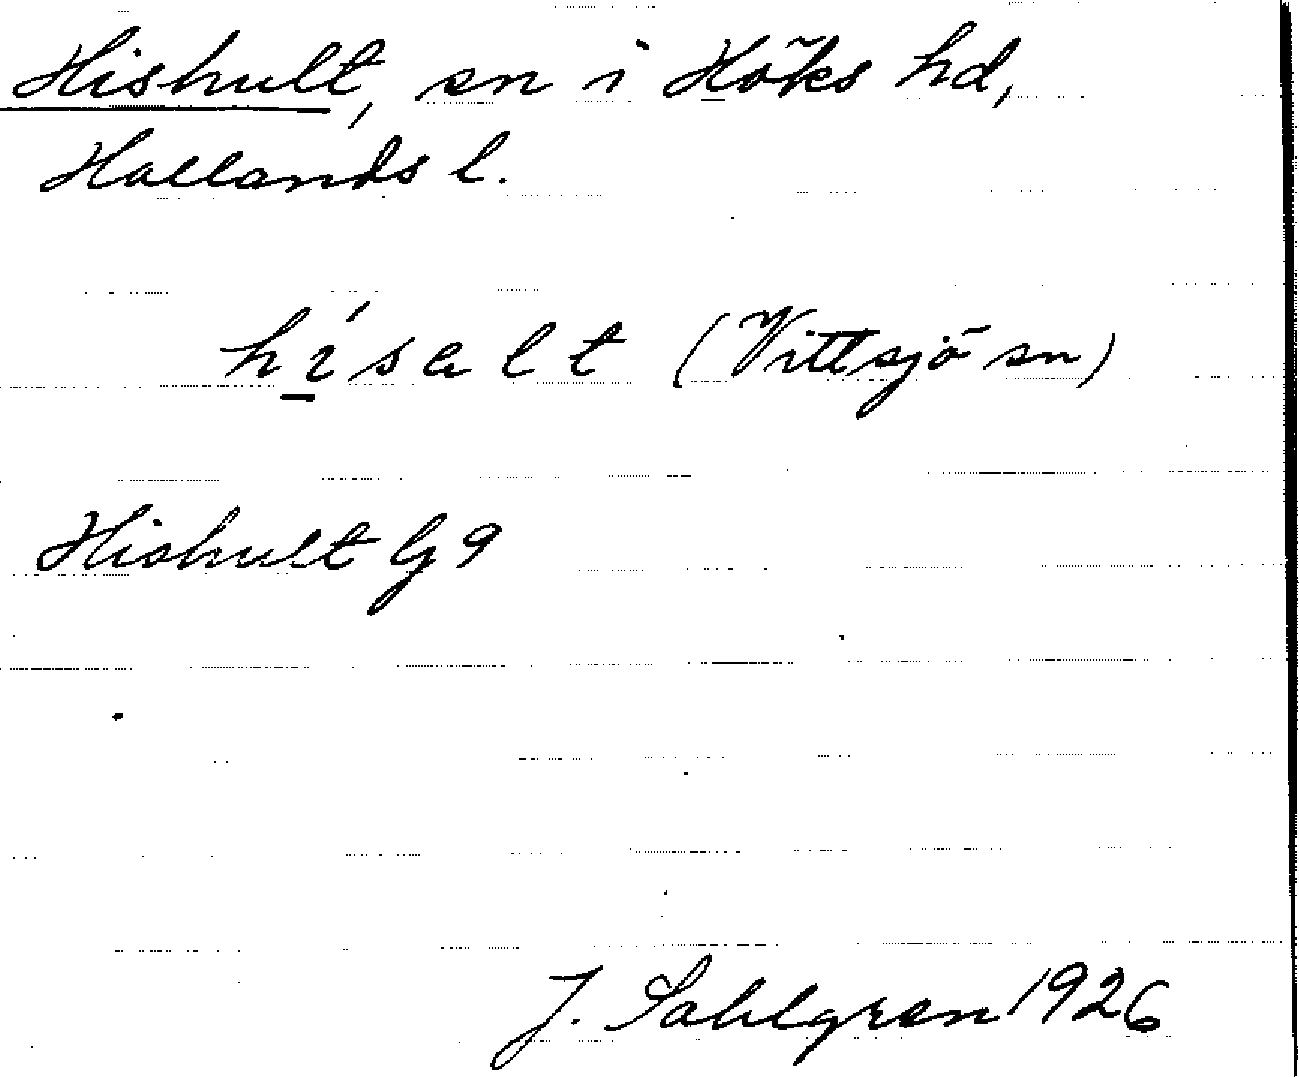 Hishult, sn i Höks hd,
Hallands l.
hi̱´salt (Vittsjö sn)
Hishult G9
J. Sahlgren 1926